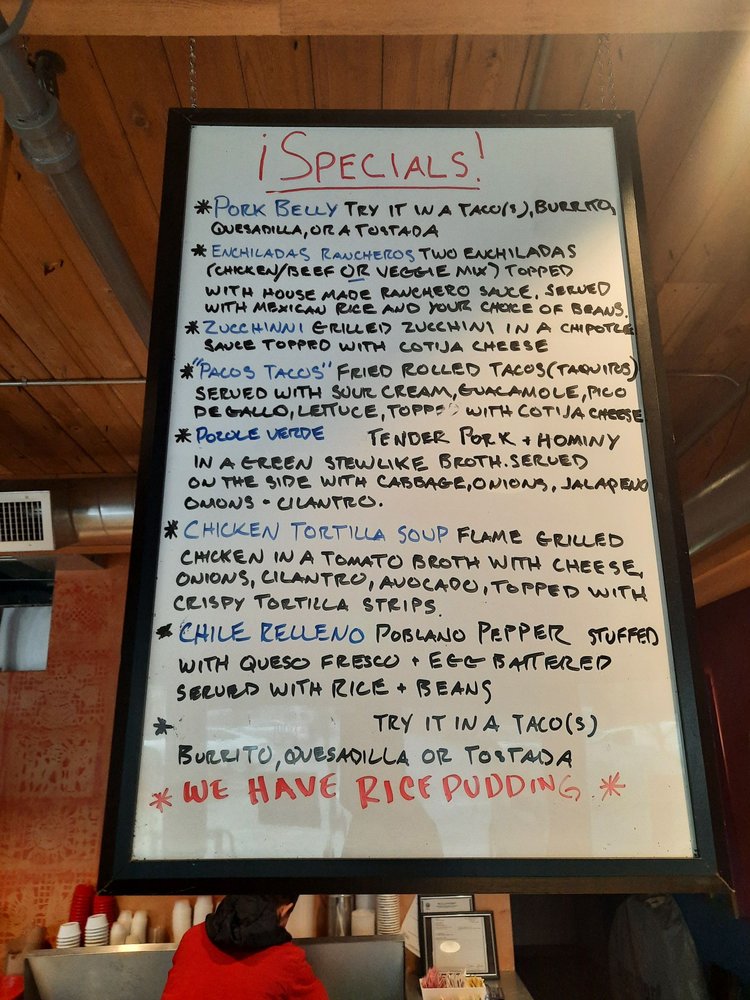 ¡SPECIALS!
* PORK BELLY TRY IT IN A TACO(S), BURRITO,
QUESADILLA, OR A TOSTADA
* ENCHILADAS RANCHEROS TWO ENCHILADAS
(CHICKEN/BEEF OR VEGGIE MIX) TOPPED
WITH HOUSE MADE RANCHERO SAUCE. SERVED
WITH MEXICAN RICE AND YOUR CHOICE OF BEANS.
* ZUCCHINNI GRILLED ZUCCHINI IN A CHIPOTLE
SAUCE TOPPED WITH COTIJA CHEESE
* "PACOS TACOS" FRIED ROLLED TACOS (TAQUITOS)
SERVED WITH SOUR CREAM, GUACAMOLE, PICO
DE GALLO, LETTUCE, TOPPED WITH COTIJA CHEESE
* POZOLE VERDE TENDER PORK + HOMINY
IN A GREEN STEWLIKE BROTH. SERVED
ON THE SIDE WITH CABBAGE, ONIONS, JALAPENO
ONIONS - CILANTRO.
* CHICKEN TORTILLA SOUP FLAME GRILLED
CHICKEN IN A TOMATO BROTH WITH CHEESE,
ONIONS, CILANTRO, AVOCADO, TOPPED WITH
CRISPY TORTILLA STRIPS.
* CHILE RELLENO POBLANO PEPPER STUFFED
WITH QUESO FRESCO + EGG BATTERED
SERVED WITH RICE + BEANS
* TRY IT IN A TACO(S)
BURRITO, QUESADILLA OR TOSTADA
* WE HAVE RICE PUDDING. *